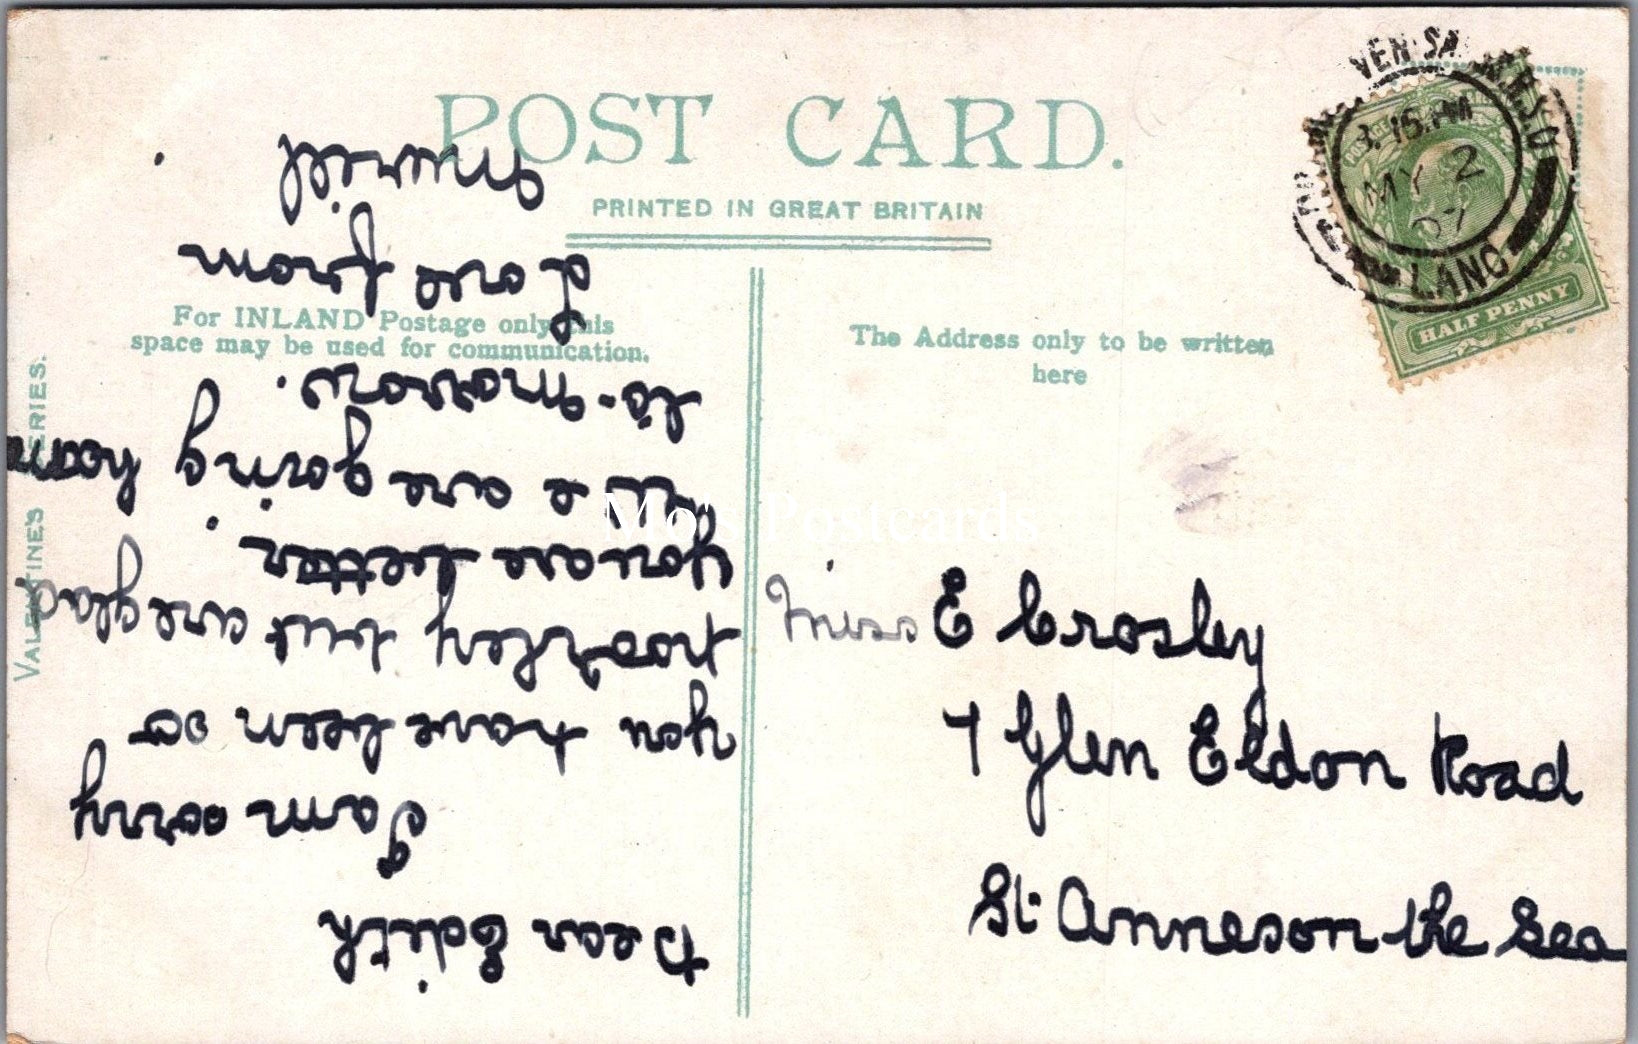 POST CARD.
PRINTED IN GREAT BRITAIN
For INLAND Postage only this
space may be used for communication.
The Address only to be written
here
VALENTINE'S SERIES.
3.15 PM
MY 2
07
LANC
HALF PENNY
Dear Edith
I am sorry
you have been so
poorley but are glad
you are better.
We are going home
to-morow.
Love from
Muriel
Miss E Crosley
7 Glen Eldon Road
St Annes on the Sea
Mo's Postcards